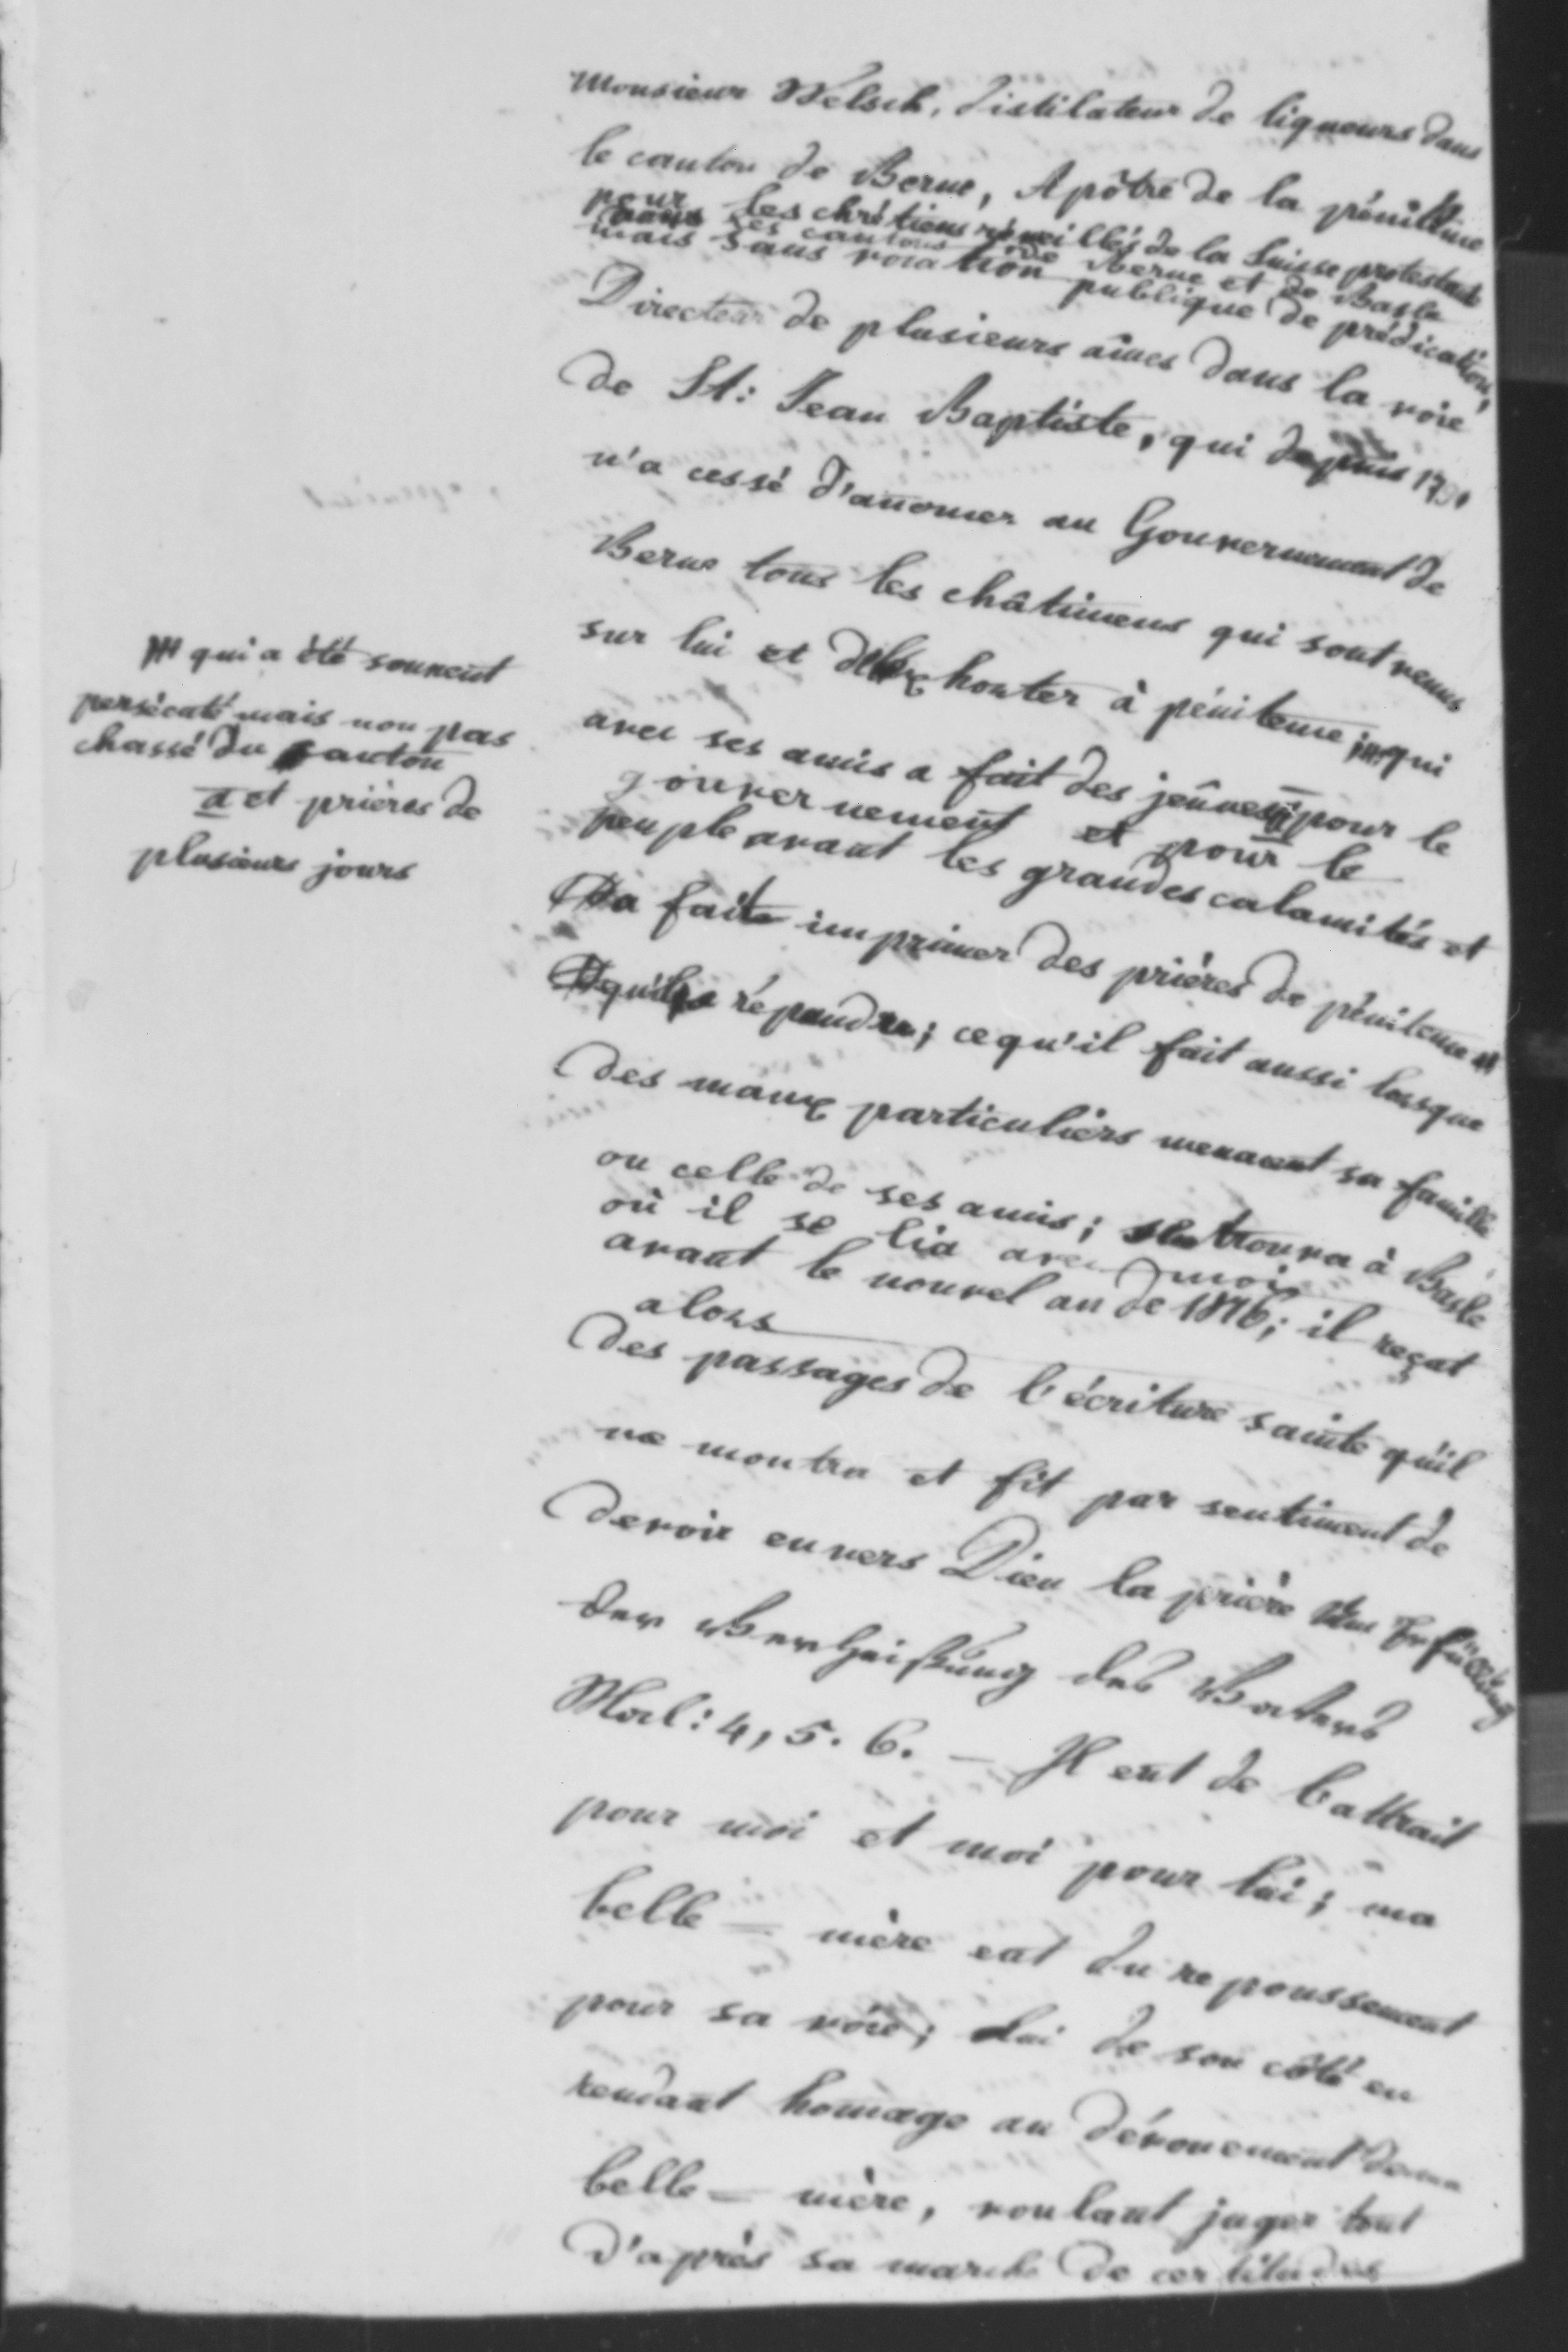 Monsieur Welsch, distilateur de liqueurs dans
le canton de Berne, Apôtre de la pénitence
pour les chrétiens réveillés de la Suisse protestante
dans les cantons de Berne et de Basle
mais sans vocation publique de prédication,
Directeur de plusieurs âmes dans la voie
de St: Jean Baptiste, qui depuis
n'a cessé d'anoncer au Gouvernement de
Berne tous les châtimens qui sont venus
sur lui et de l'exhorter à pénitence qui
avec ses amis a fait des jeûnes a pour le
gouvernement et pour le
peuple avant les grandes calamités et
a fait imprimer des prières de pénitence et
répendre; ce qu'il fait aussi lorsque
des maux particuliers menacent sa famille
ou celle de ses amis; se trouva à Basle
où il se lia avec moi
avant le nouvel an de 1816; il reçut
alors
des passages de l'écriture sainte qu'il
me montra et fit par sentiment de
devoir envers Dieu la prière um Erfüllung
der Verheißung des Vaters
Mal: 4, 5. 6. — Il eut de l'attrait
pour moi et moi pour lui; ma
belle=mère eut du repoussement
pour sa voie; Lui de son côté en
rendant homage au dévouement de ma
belle=mère, voulant juger tout
d'après sa marche de certitudes
qui a été souvent
persécuté mais non pas
chassé du canton
a et prières de
plusieurs jours